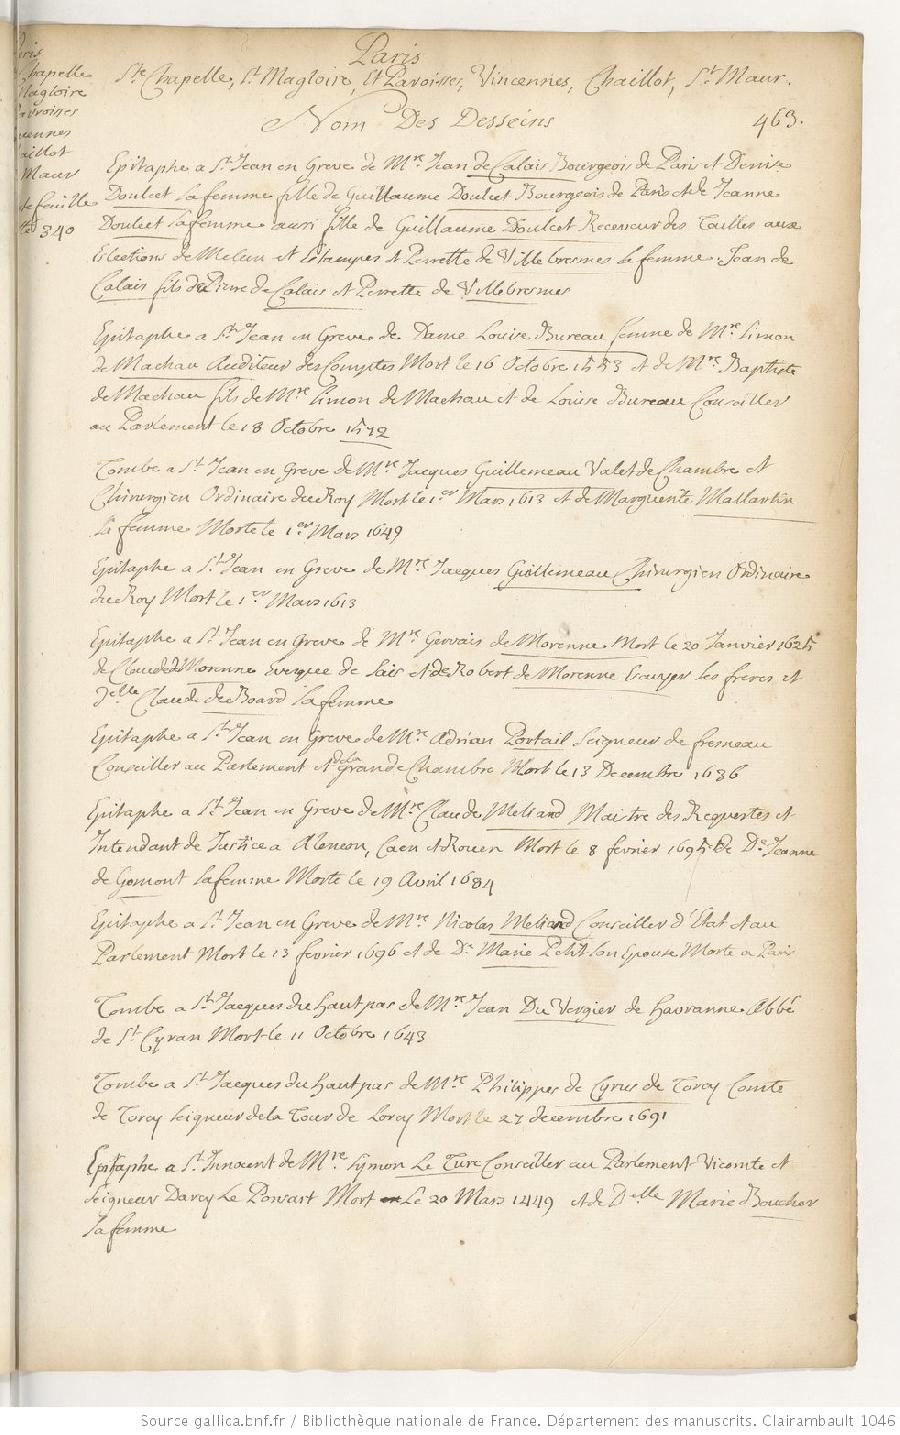 Paris
Ste Chapelle, St Magloire, et Paroisses, Vincennes, Chaillot, St Maur.
Nom Des Desseins 463.
Chapelle
Magloire
Maur
de feuille
340
Epitaphe a St Jean en Greve de Mre Jean de Calais Bourgeois de Paris et Denise
Doulcet sa femme fille de Guillaume Doulcet Bourgeois de Paris et de Jeanne
Doulcet sa femme aussi fille de Guillaume Doulcet Receveur des Tailles aux
Elections de Melun et Estampes et Perrette de Villebresmes se femme. Jean de
Calais fils de Pierre de Calais et Perrette de Villebresmes
Epitaphe a St Jean en Greve de Dame Louise Bureau femme de Mre Simon
de Machau Auditeur des Comptes Mort le 16 Octobre 1553 et de Mre Baptiste
de Machau fils de Mre Simon de Machau et de Louise Bureau Conseiller
au Parlement le 18 Octobre 1572
Tombe a St Jean en Greve de Mre Jacques Guillemeau Valet de Chambre et
Chirurgien Ordinaire du Roy Mort le 1er Mars 1613 et de Marguerite Mallartin
sa femme Morte le 1er Mars 1649
Epitaphe a St Jean en Greve de Mre Jacques Guillemeau Chirurgien Ordinaire
du Roy Mort le 1er Mars 1613
Epitaphe a St Jean en Greve de Mre Gervais de Morenne Mort le 20 Janvier 1625
de Claude de Morenne Evesque de Sais et de Robert de Morenne Escuyer ses freres et
Delle Claude de Board sa femme
Epitaphe a St Jean en Greve de Mre Adrian Portail Seigneur de fresneau
Conseiller au Parlement et de la Grande Chambre Mort le 13 Decembre 1686
Epitaphe a St Jean en Greve de Mre Claude Meliand Maistre des Requestes et
Intendant de Justice a Alencon, Caen et Rouen Mort le 8 fevrier 1695 et de De Jeanne
de Gomont sa femme Morte le 19 Avril 1684
Epitaphe a St Jean en Greve de Mre Nicolas Meliand Conseiller d'Etat et au
Parlement Mort le 13 fevrier 1696 et de De Marie Petit son Epouse Morte a Paris
Tombe a St Jacques du haut pas de Mre Jean Du Vergier de havranne Abbé
de St Cyran Mort le 11 Octobre 1643
Tombe a St Jacques du haut pas de Mre Philippes de Cyrus de Torcy Comte
de Torcy Seigneur de la Tour de Lorcy Mort le 27 decembre 1691
Epitaphe a St Innocent de Mre Symon Le Turc Conseiller au Parlement Vicomte et
Seigneur Darcy Le Ponsart Mort le 20 Mars 1449 et de Delle Marie Boucher
sa femme
Source gallica.bnf.fr / Bibliothèque nationale de France. Département des manuscrits. Clairambault 1046